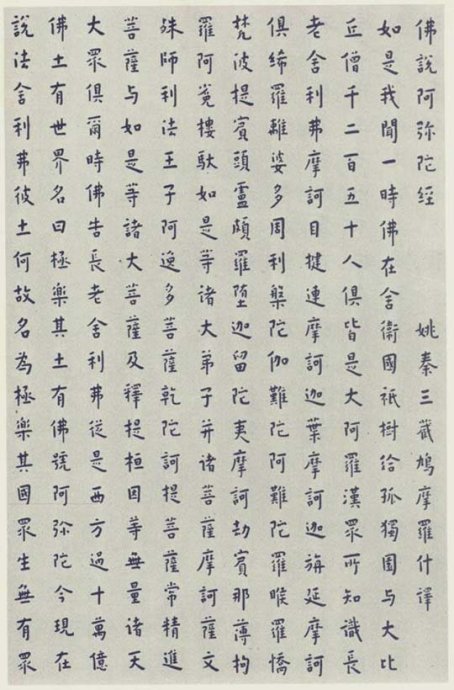 佛說阿弥陀経 姚秦三藏鳩摩羅什譯
如是我聞一時佛在舍衛國祇樹給孤獨園与大比
丘僧千二百五十人俱皆是大阿羅漢眾所知識長
老舍利弗摩訶目揵連摩訶迦葉摩訶迦旃延摩訶
俱絺羅離婆多周利槃陀伽難陀阿難陀羅睺羅憍
梵波提賓頭盧頗羅堕迦留陀夷摩訶劫賓那薄拘
羅阿㝹樓馱如是等諸大弟子并諸菩薩摩訶薩文
殊師利法王子阿逸多菩薩乾陀訶提菩薩常精進
菩薩与如是等諸大菩薩及釋提桓因等無量諸天
大眾俱爾時佛告長老舍利弗從是西方過十萬億
佛土有世界名曰極樂其土有佛號阿弥陀今現在
說法舍利弗彼土何故名為極樂其國眾生無有眾